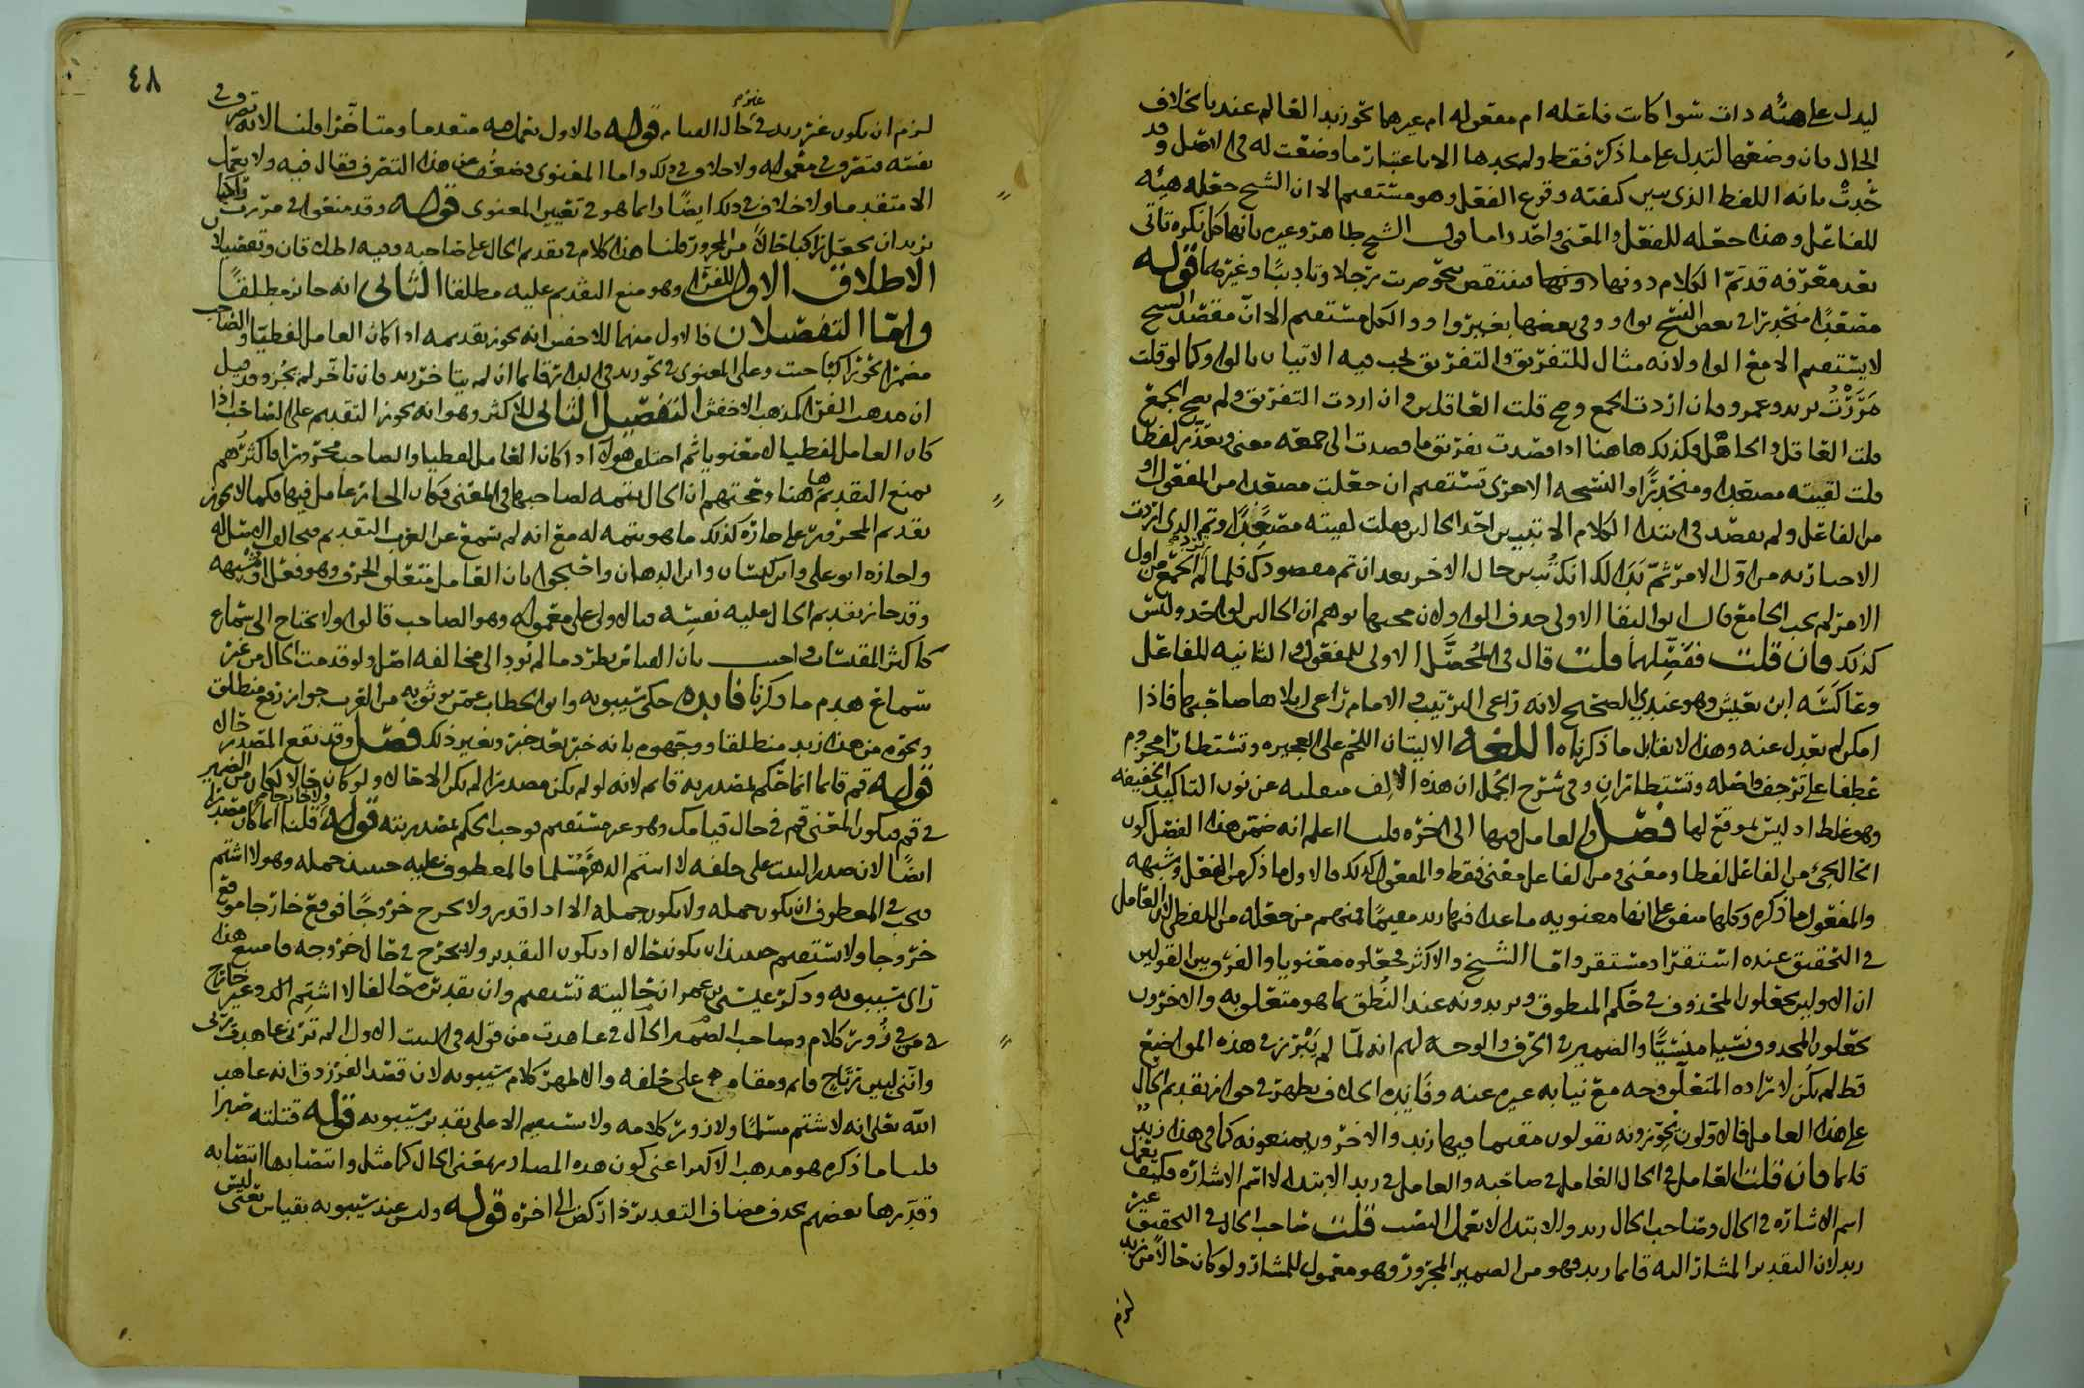 ليدل على هيئه ذات سوا كانت فاعله ام مفعوله ام غيرهما نحو زيد القائم عندنا بخلاف
الحال فان وضعها لتدل على ما ذكر فقط ولم يجدها الا باعتبار ما وضعت له في الاصل وقد
حُدّت بانه اللفظ الذي يبين كيفية وقوع الفعل وهو مستقيم الا ان الشيخ جعله هيئه
للفاعل وهذا جعله للفعل والمعنى واحد واما قول الشيخ طاهر وغيره بانها كل نكرة تاتي
بعد معرفه قد تم الكلام دونها فينتقض بنحو ضربت رجلا وتاديبا وغيرهما قوله
مصعدا منحدرا في بعض النسخ بواو وفي بعضها بغير واو والكل مستقيم الا ان مقصد الشيخ
لا يستقيم الا مع الواو لانه مثال للتفريق والتفريق يجب فيه الاتيان بالواو كما لو قلت
مررت بزيد وعمرو فان اردت الجمع وصح قلت العاقلين وان اردت التفريق ولم يصح الجمع
قلت العاقل والجاهل فكذلك هاهنا اذا قصدت تفريق ما قصدت الى جمعه معنى وتعذر لفظا
قلت لقيته مصعدا ومنحدرا والنسخه الاخرى تستقيم ان جعلت مصعدا من المفعول او
من الفاعل ولم تقصد في ابتدا الكلام الا تبيين احد الحالين فقلت لقيته مصعدا وتم الذي اردت
الاخبار به من اول الامر ثم بدا لك انك تبين حال الاخر بعد ان تم مقصودك فلما لم تجمع من اول
الامر لم يجب الجامع قال ابو البقا الاولى حذف الواو لان مجيها يوهم ان الحالين لواحد وليس
كذلك فان قلت ففصلهما قلت قال في المحصل الاولى للمفعول والثانيه للفاعل
وعاكسه ابن يعيش وهو عندي الصحيح لانه راعى الترتيب والامام راعى ايلاها صاحبها فاذا
امكن لم يعدل عنه وهذا لا يقابل ما ذكرناه اللغه الاليتان اللحم على العجيزه وتستطارا مجزوم
عطفا على ترجف فاصله وتستطاران وفي شرح الجمل ان هذه الالف منقلبه عن نون التاكيد الخفيفه
وهو غلط اذ ليس بموقع لها فصل والعامل فيها الى اخره قلنا اعلم انه ضمن هذا الفصل كون
الحال تجيء من الفاعل لفظا ومعنى ومن الفاعل معنى فقط والمفعول كذلك فالاول ما ذكر من الفعل وشبهه
والمفعول ما ذكره وكلها متفق على انها معنويه ما عدا فيها زيد مقيما فمنهم من جعله من اللفظي لان العامل
في التحقيق عنده استقر او مستقر واما الشيخ والاكثر فجعلوه معنويا والفرق بين القولين
ان الاولين يجعلون المحذوف في حكم المنطوق ويريدونه عند النطق بما هو متعلق به والاخرون
يجعلون المحذوف نسيا منسيا والضمير في الحرف والوجه لهم انه لما لم يبرز في هذه المواضع
قط لم يكن لارادة المتعلق وجه مع نيابه غيره عنه وفايده الخلاف يظهر في جواز تقديم الحال
على هذا العامل فالاولون يجوزونه يقولون مقيما فيها زيد والاخرون يمنعونه كما في هذا زيد
قائما فان قلت العامل في الحال العامل في صاحبه والعامل في زيد الابتدا لا اسم الاشاره فكيف يعمل
اسم الاشاره في الحال وصاحب الحال زيد والابتدا لا يعمل النصب قلت صاحب الحال في التحقيق غير
زيد لان التقدير المشار اليه قائما زيد فهو من الضمير المجرور وهو معمول للمشار ولو كان حالا من زيد
لزم
٤٨
لزم ان يكون غير زيد في حال غير القيام قوله فالاول يعمل فيه متقدما ومتاخرا قلنا لانه تصرف في
نفسه فتصرف في معموله ولا خلاف في ذلك واما المعنوي فضعف عن هذا التصرف فقال فيه ولا يعمل
الا متقدما ولا خلاف في ذلك ايضا وانما هو في تعيين المعنوي قوله وقد منعوا في مررت راكبا
بزيد ان يجعل راكبا حالا من المجرور قلنا هذا كلام في تقديم الحال على صاحبه وفيه اطلاقان وتفصيلان
الاطلاق الاول للفرا وهو منع التقديم عليه مطلقا الثاني انه جائز مطلقا
واما التفصيلان فالاول منهما للاخفش انه يجوز تقديمه اذا كان العامل لفظيا والصاحب
مضمرا نحو راكبا جيت وعلى المعنوي في نحو زيد في الدار قائما ان لم يتاخر زيد فان تاخر لم يجز وقد قيل
ان مذهب الفرا كمذهب الاخفش التفصيل الثاني للاكثر وهو انه يجوز التقديم على الصاحب اذا
كان العامل لفظيا لا معنويا ثم اختلف هؤلا اذا كان العامل لفظيا والصاحب مجرورا فاكثرهم
يمنع التقديم هاهنا وحجتهم ان الحال تتمه لصاحبها في المعنى فكان الجار عامل فيها فكما لا يجوز
تقديم المجرور على جاره كذلك ما هو تتمه له مع انه لم يسمع عن العرب التقديم فخالف الامثله
واجازه ابو علي وابن كيسان وابن الدهان واحتجوا بان العامل متعلق الحرف وهو فعل او شبهه
وقد جاز تقديم الحال عليه نفسه فبالاولى على معموله وهو الصاحب قالوا ولا يحتاج الى سماع
كاكثر المقيسات واجيب بان القياس يطرد ما لم يؤد الى مخالفه اصل ولو قدمت الحال من غير
سماع هدم ما ذكرنا فايده حكى سيبويه وابو الخطاب عمن يوثق به من العرب جواز رفع منطلق
ونحوه من هذا زيد منطلقا ووجهوه بانه خبر بعد خبر وبغير ذلك فصل وقد يقع المصدر حالا
قوله قم قائما انما حكم بمصدريه قائم لانه لو لم يكن مصدرا لم يكن الا حالا ولو كان حالا لكان من الضمير
في قم فيكون المعنى قم في حال قيامك وهو غير مستقيم فوجب الحكم بمصدريته قوله ولا خارجا قلنا انما كان مصدرا
ايضا لان صدر البيت على حلفه لا اشتم الدهر مسلما فالمعطوف عليه حينئذ جمله وهو لا اشتم
فيجب في المعطوف ان يكون جمله ولا يكون جملة الا اذا قدر ولا يخرج خروجا فوقع خارجا موقع
خروجا ولا يستقيم حينئذ ان يكون حالا اذ يكون التقدير ولا يخرج في حال خروجه فامتنع هذا
راى سيبويه وذكر عيسى بن عمر ان حاليته تستقيم وان تقديره حالفا لا اشتم الدهر وغير خارج
من في زور كلام وصاحب الضمير الحال في عاهدت من قوله في البيت الاول الم ترني عاهدت ربي
وانني لبين رتاج قائم ومقام على حلفه والاظهر كلام سيبويه لان قصد الفرزدق انه عاهد
الله تعالى انه لا شتم مسلما ولا زور كلامه ولا يستقيم الا على تقدير سيبويه قوله قتلته صبرا
قلنا ما ذكره هو مذهب الاكثر اعني كون هذه المصادر بمعنى الحال كما مثل وانتصابها انتصابه
وقدرها بعضهم بحذف مضاف التقدير ذا ركض الى اخره قوله وليس عند سيبويه بقياس يعني ليس